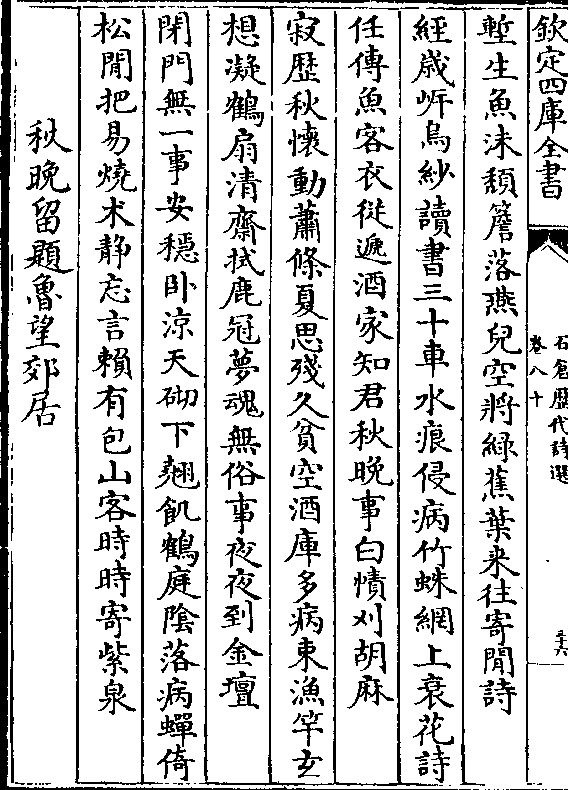 欽定四庫全書
石倉歷代詩選
卷八十
三六
塹生魚沫頽簷落燕兒空將綠蕉葉来往寄閒詩
經歲岸烏紗讀書三十車水痕侵病竹蛛網上衰花詩
任傳魚客衣從遞酒家知君秋晚事白幘刈胡麻
寂歴秋懷動蕭條夏思殘久貧空酒庫多病束漁竿玄
想凝鶴扇清齋拭鹿冠夢魂無俗事夜夜到金壇
閉門無一事安穏卧涼天砌下翹飢鶴庭隂落病蟬倚
松閒把易燒术静忘言頼有包山客時時寄紫泉
秋晚留題魯望郊居